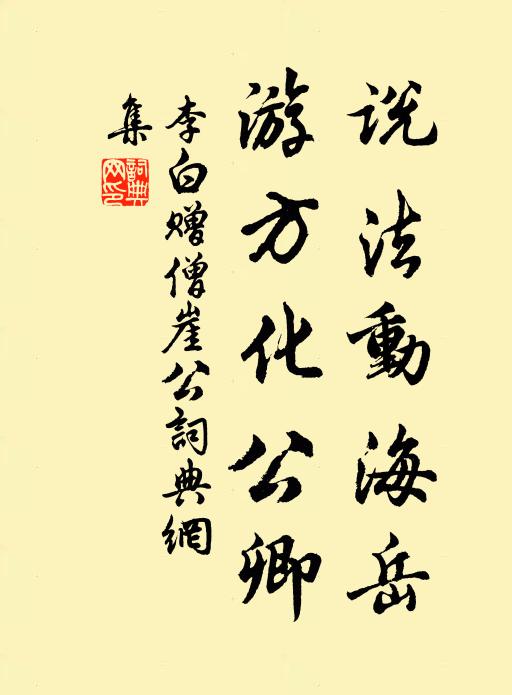 说法動海岳
游方化公卿
李白赠僧崖公詞典網
集
詞典
网印